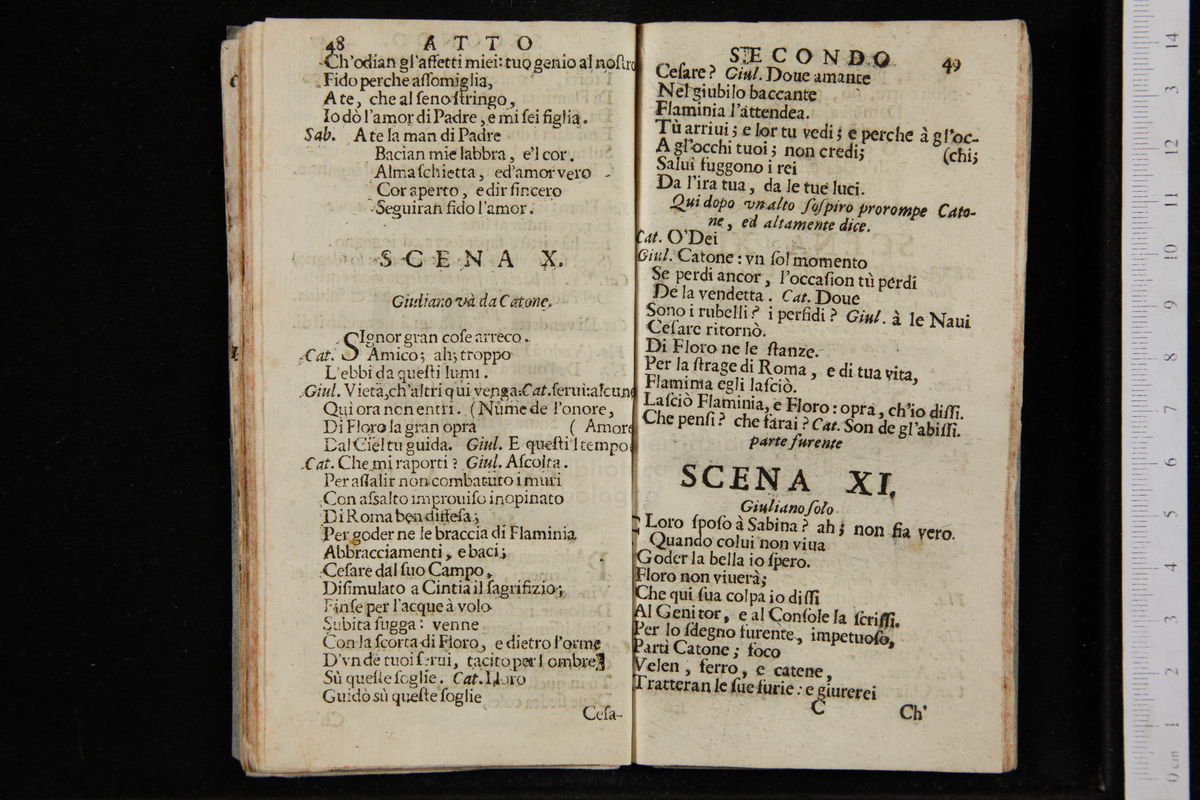 48 ATTO
Ch'odian gl'affetti miei: tuo genio al nostro
Fido perche assomiglia,
A te, che al seno stringo,
Io dò l'amor di Padre, e mi sei figlia.
Sab. A te la man di Padre
Bacian mie labbra, e'l cor.
Alma schietta, ed'amor vero
Cor aperto, e dir sincero
Seguiran fido l'amor.
SCENA X.
Giuliano và da Catone.
SIgnor gran cose arreco.
Cat. Amico; ah; troppo
L'ebbi da questi lumi.
Giul. Vietà, ch'altri qui venga. Cat. serui: alcuno
Qui ora non entri. (Nume de l'onore,
Di Floro la gran opra ( Amore
Dal Ciel tu guida. Giul. E questi'l tempo
Cat. Che mi raporti? Giul. Ascolta.
Per assalir non combatuto i muri
Con assalto improuiso inopinato
Di Roma ben diffesa;
Per goder ne le braccia di Flaminia
Abbracciamenti, e baci;
Cesare dal suo Campo,
Disimulato a Cintia il sagrifizio;
Finse per l'acque à volo
Subita fugga: venne
Con la scorta di Floro, e dietro l'orme
D'vn de tuoi serui, tacito per l ombre
Sù queste soglie. Cat. Floro
Guidò sù queste soglie
Cesa-
SECONDO 49
Cesare? Giul. Doue amante
Nel giubilo baccante
Flaminia l'attendea.
Tù arriui; e lor tu vedi; e perche à gl'oc-
A gl'occhi tuoi; non credi; (chi;
Salui fuggono i rei
Da l'ira tua, da le tue luci.
Qui dopo vn alto sospiro prorompe Cato-
ne, ed altamente dice.
Cat. O'Dei
Giul. Catone: vn sol momento
Se perdi ancor, l'occasion tù perdi
De la vendetta. Cat. Doue
Sono i rubelli? i perfidi? Giul. à le Naui
Cesare ritornò.
Di Floro ne le stanze.
Per la strage di Roma, e di tua vita,
Flaminia egli lasciò.
Lasciò Flaminia, e Floro: opra, ch'io dissi.
Che pensi? che farai? Cat. Son de gl'abissi.
parte furente
SCENA XI.
Giuliano solo.
FLoro sposo à Sabina? ah; non fia vero.
Quando colui non viua
Goder la bella io spero.
Floro non viuerà;
Che qui sua colpa io dissi
Al Genitor, e al Console la scrissi.
Per lo sdegno furente, impetuoso,
Parti Catone; foco
Velen, ferro, e catene,
Tratteran le sue furie: e giurerei
C Ch'